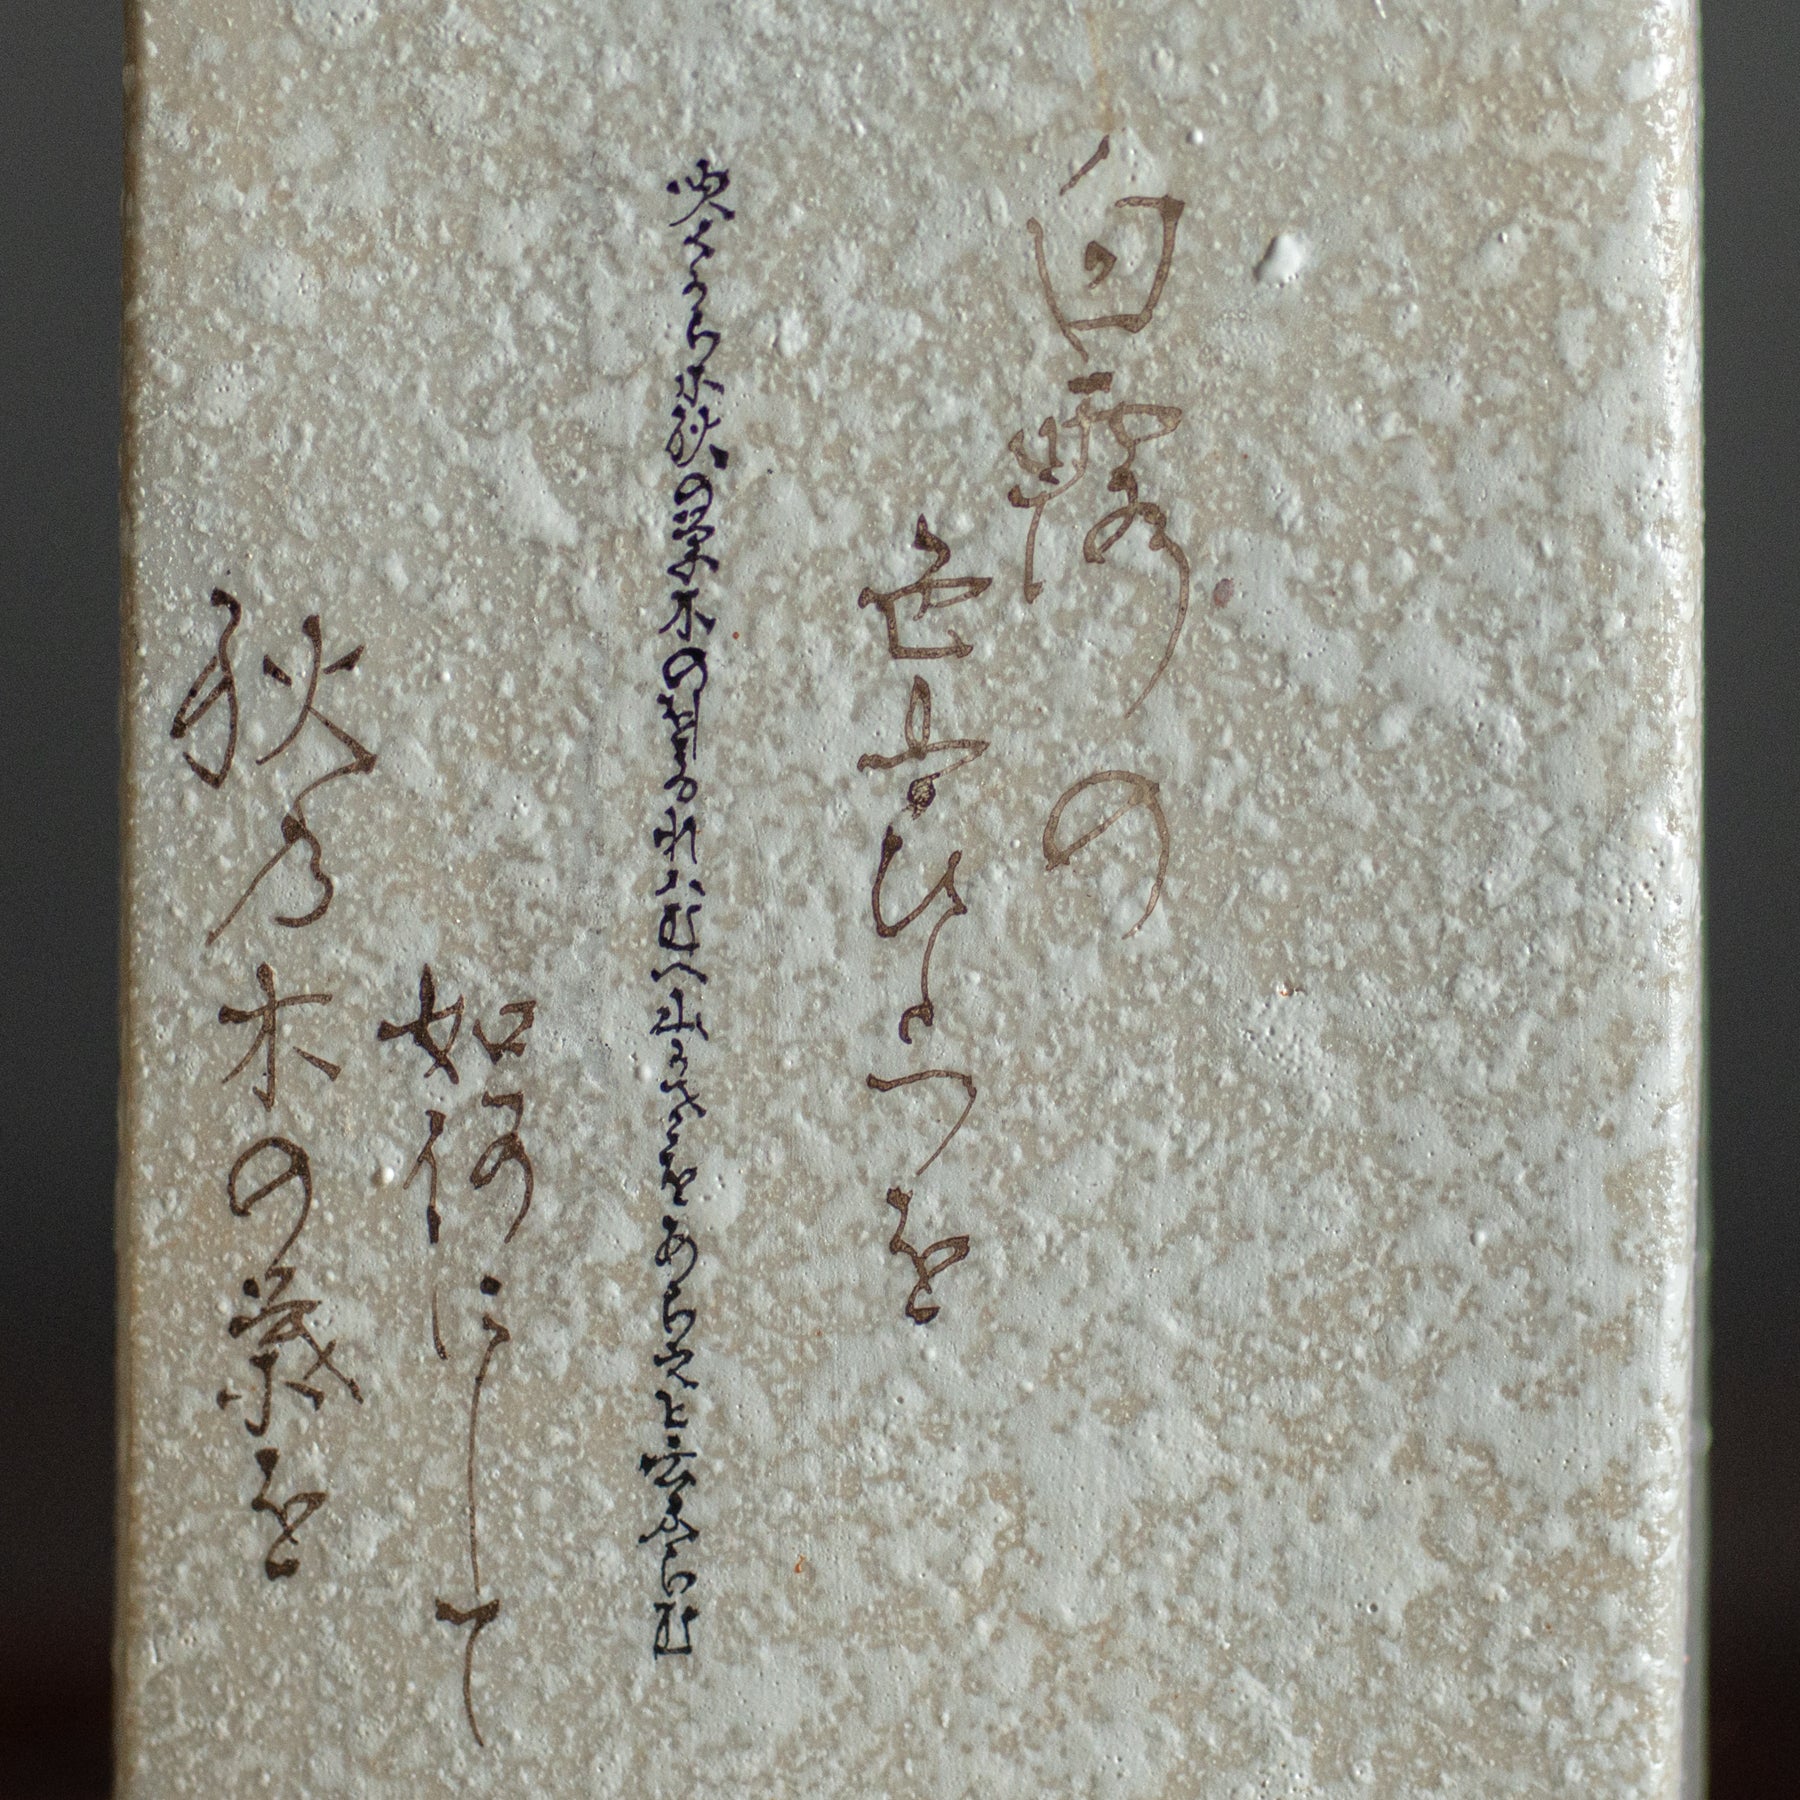 白露の
色はひとつを
吹くからに秋の草木のしをるれハむへ山かせをあらしと云ふらむ
如何にして
秋乃木の葉を